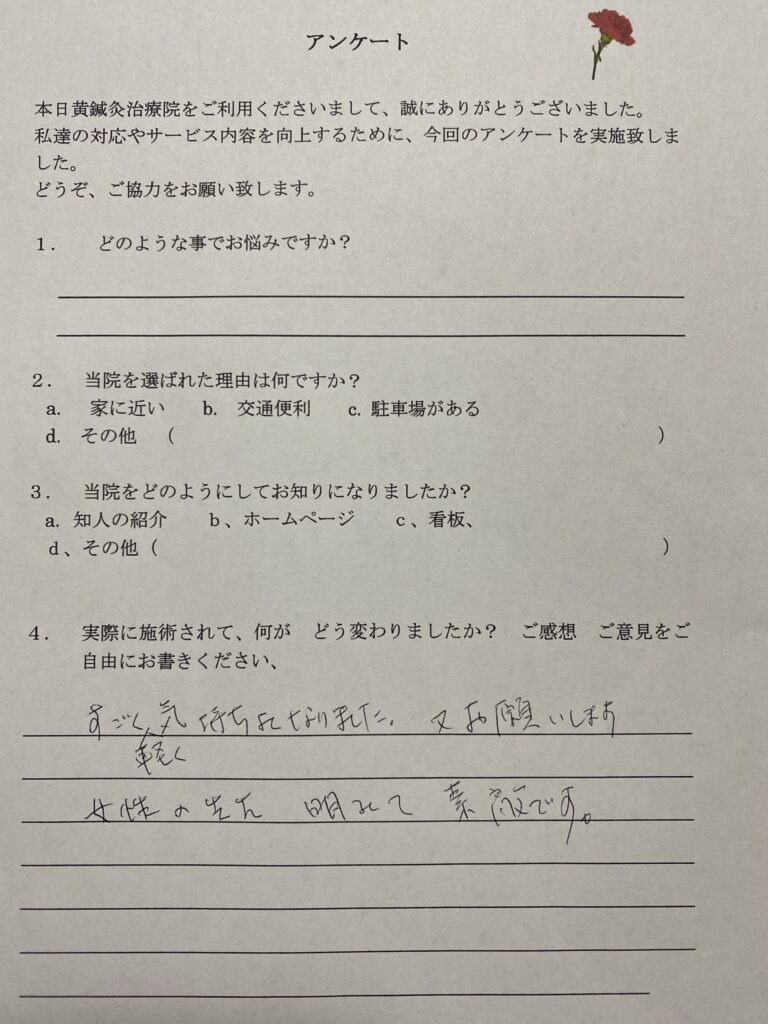 アンケート
本日黄鍼灸治療院をご利用くださいまして、誠にありがとうございました。
私達の対応やサービス内容を向上するために、今回のアンケートを実施致しま
した。
どうぞ、ご協力をお願い致します。
１． どのような事でお悩みですか？
２． 当院を選ばれた理由は何ですか？
a. 家に近い b. 交通便利 c. 駐車場がある
d. その他 （ ）
３． 当院をどのようにしてお知りになりましたか？
a. 知人の紹介 ｂ、ホームページ ｃ、看板、
ｄ、その他（ ）
４． 実際に施術されて、何が どう変わりましたか？ ご感想 ご意見をご
自由にお書きください、
すごく気持ちよくなりました。又お願いします
軽く
女性の先生 明るくて 素敵です。